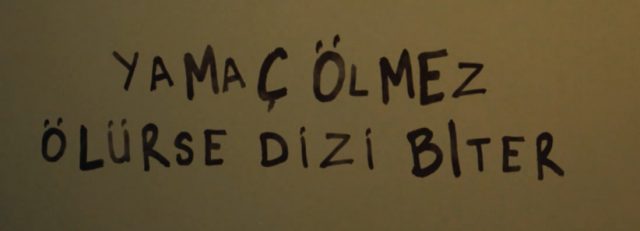 YAMAÇ ÖLMEZ
ÖLÜRSE DİZİ BİTER